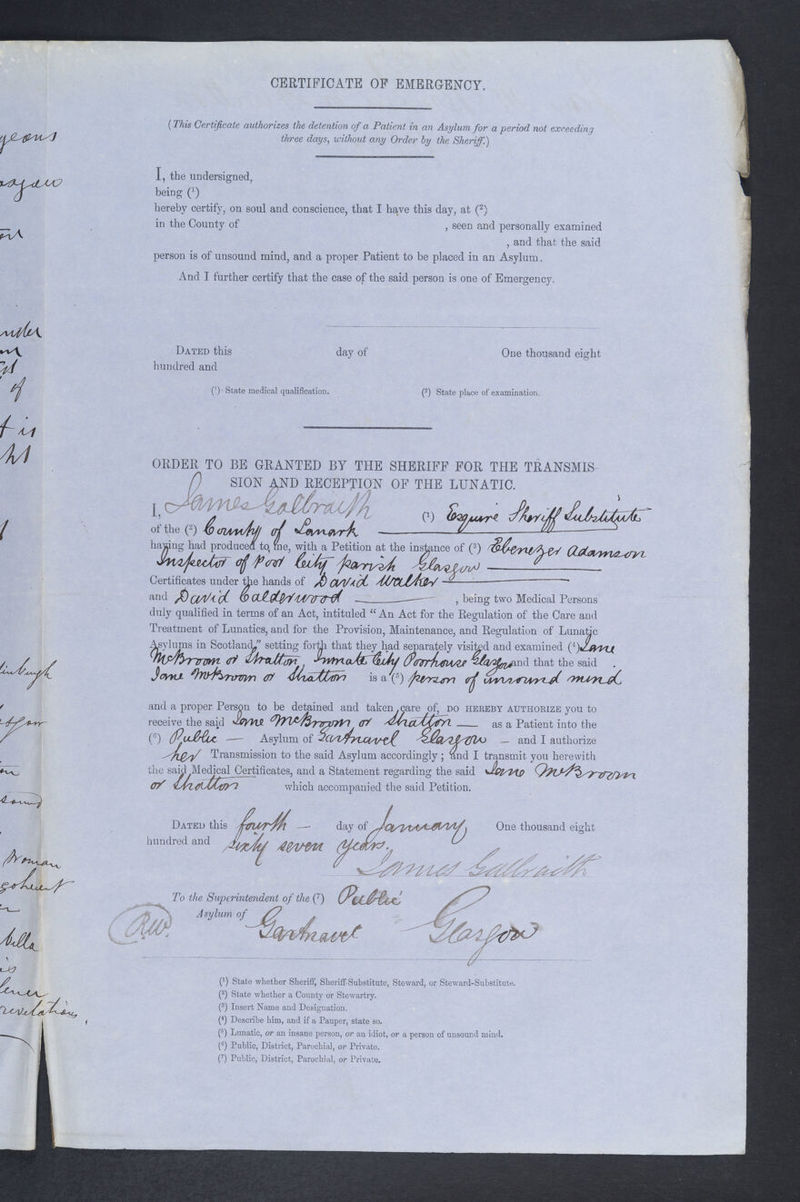 CERTIFICATE OF EMERGENCY.
(This Certificate authorizes the detention of a Patient in an Asylum for a period not exceeding
three days, without any Order by the Sheriff.)
I, the undersigned,
being (1)
hereby certify, on soul and conscience, that I have this day, at (2)
in the County of , seen and personally examined
, and that the said
person is of unsound mind, and a proper Patient to be placed in an Asylum.
And I further certify that the case of the said person is one of Emergency.
DATED this day of One thousand eight
hundred and
(1) State medical qualification. (2) State place of examination.
ORDER TO BE GRANTED BY THE SHERIFF FOR THE TRANSMIS-
SION AND RECEPTION OF THE LUNATIC.
I, James Galbraith (1) Esquire Sheriff Substitute
of the (2) County of Lanark
having had produced to me, with a Petition at the instance of (3) Ebenezer Adamson
Inspector of Poor City parish Glasgow
Certificates under the hands of David Walker
and David Calderwood , being two Medical Persons
duly qualified in terms of an Act, intituled “An Act for the Regulation of the Care and
Treatment of Lunatics, and for the Provision, Maintenance, and Regulation of Lunatic
Asylums in Scotland,” setting forth that they had separately visited and examined (4) Jane
McBroom or Shatton, Inmate City Poorhouse Glasgow and that the said
Jane McBroom or Shatton is a (5) person of unsound mind
and a proper Person to be detained and taken care of, DO HEREBY AUTHORIZE you to
receive the said Jane McBroom or Shatton as a Patient into the
(6) Public Asylum of Gartnavel Glasgow and I authorize
her Transmission to the said Asylum accordingly; and I transmit you herewith
the said Medical Certificates, and a Statement regarding the said Jane McBroom
or Shatton which accompanied the said Petition.
DATED this fourth day of January One thousand eight
hundred and sixty seven years.
James Galbraith
To the Superintendent of the (7) Public
Asylum of Gartnavel Glasgow
(1) State whether Sheriff, Sheriff-Substitute, Steward, or Steward-Substitute.
(2) State whether a County or Stewartry.
(3) Insert Name and Designation.
(4) Describe him, and if a Pauper, state so.
(5) Lunatic, or an insane person, or an idiot, or a person of unsound mind.
(6) Public, District, Parochial, or Private.
(7) Public, District, Parochial, or Private.